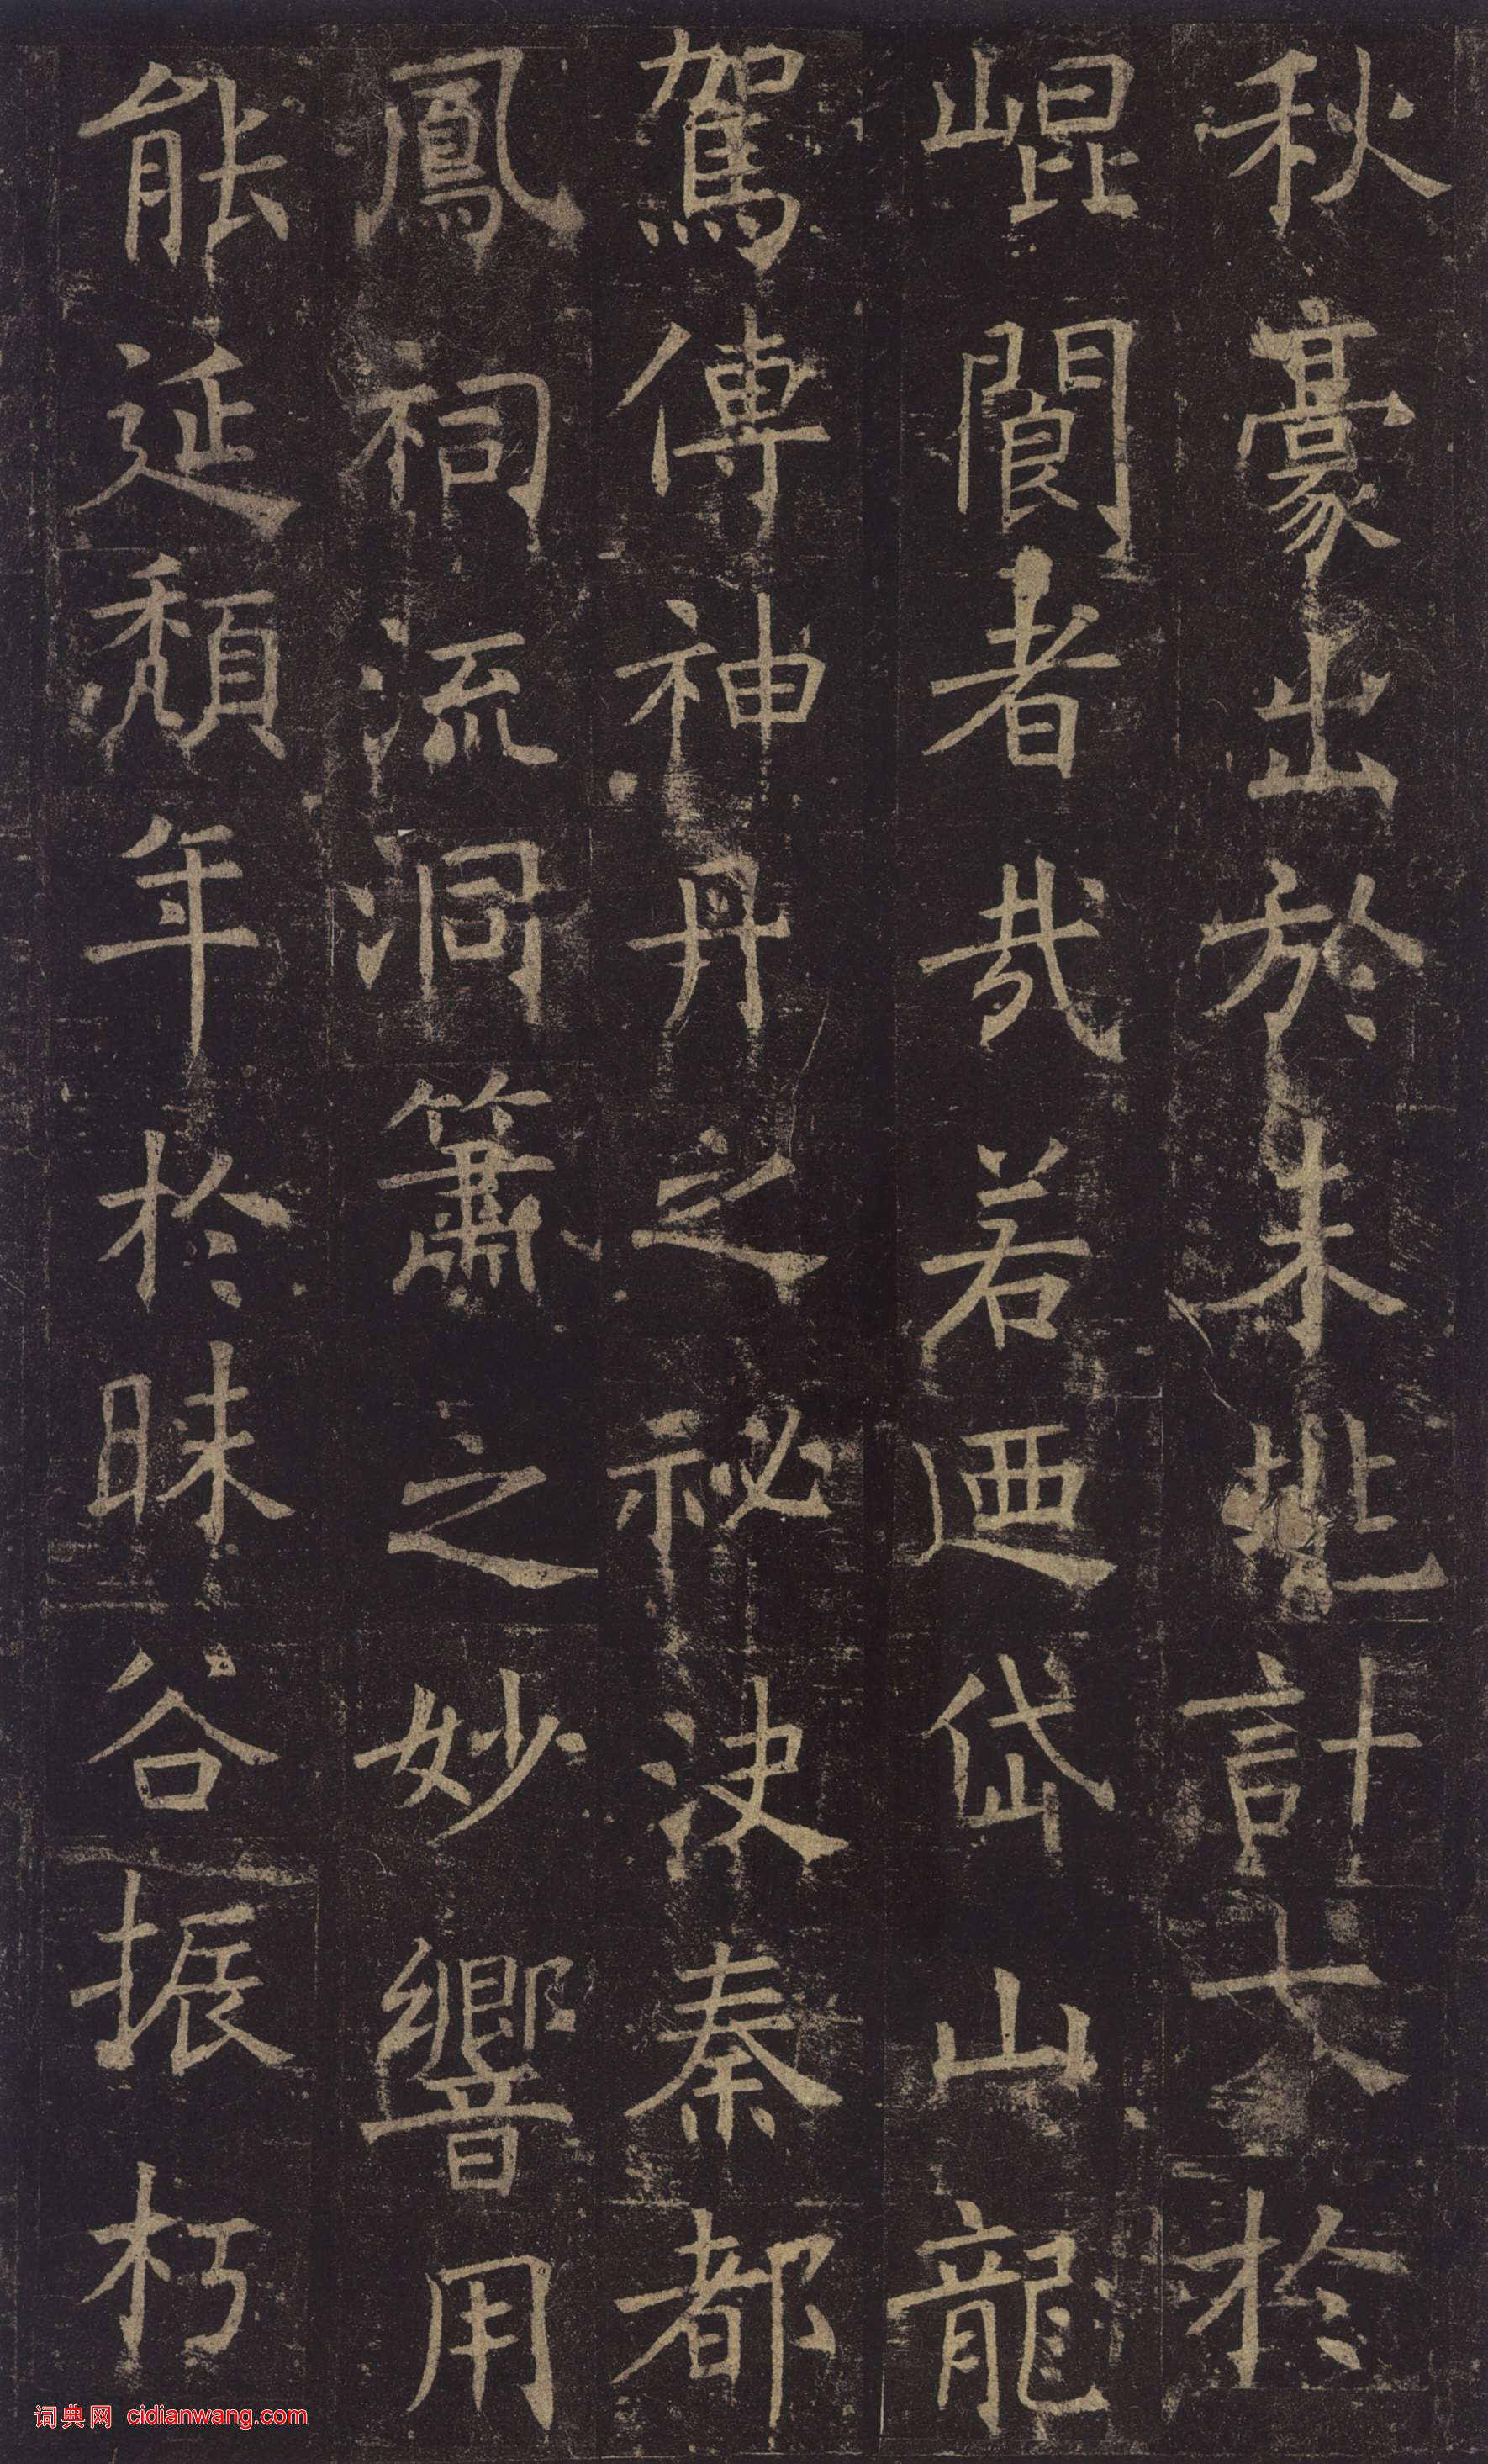 秋豪出於朱計大於
崐閬者哉若迺岱山龍
駕傳神丹之祕決秦都
鳳祠流洞簫之妙響用
能延頹年於昧谷振朽
词典网 cidianwang.com